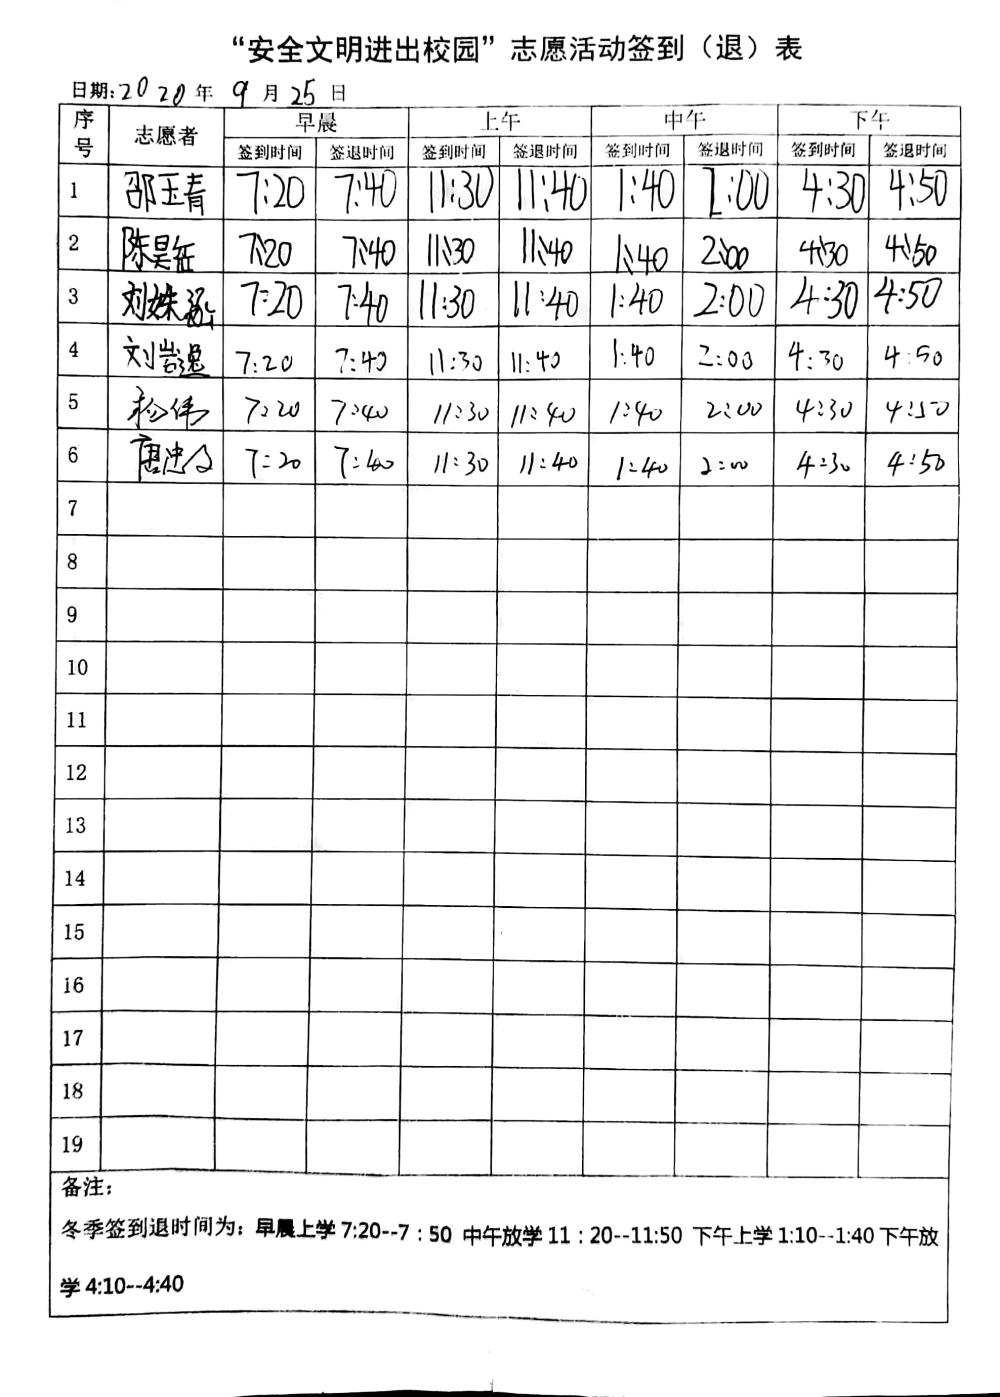 “安全文明进出校园”志愿活动签到（退）表
日期:2020年 9月25日
序号 志愿者 早晨 上午 中午 下午
签到时间 签退时间 签到时间 签退时间 签到时间 签退时间 签到时间 签退时间
1 邵玉青 7:20 7:40 11:30 11:40 1:40 2:00 4:30 4:50
2 陈昊 7:20 7:40 11:30 11:40 1:40 2:00 4:30 4:50
3 刘姝 7:20 7:40 11:30 11:40 1:40 2:00 4:30 4:50
4 刘 逸 7:20 7:40 11:30 11:40 1:40 2:00 4:30 4:50
5 杨伟 7:20 7:40 11:30 11:40 1:40 2:00 4:30 4:50
6 唐忠 7:20 7:40 11:30 11:40 1:40 2:00 4:30 4:50
7
8
9
10
11
12
13
14
15
16
17
18
19
备注：
冬季签到退时间为：早晨上学7:20--7：50 中午放学11：20--11:50 下午上学1:10--1:40下午放
学4:10--4:40